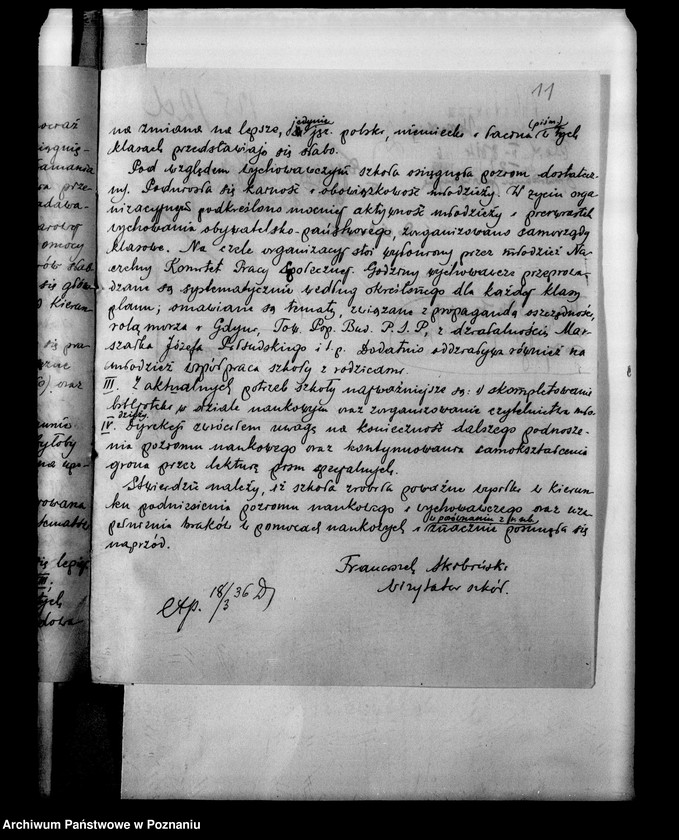 11
na zmiana na lepsze, jedynie jęz. polski, niemiecki i łacina (piśm) tych
klasach przedstawiają się słabo.
Pod względem wychowawczym szkoła osiągnęła poziom dostatecz-
ny. Podniosła się karność i obowiązkowość młodzieży. W życiu orga-
nizacyjnym podkreślono mocniej aktywność młodzieży i pierwiastek
wychowania obywatelsko-państwowego, zorganizowano samorządy
klasowe. Na czele organizacyj stoi wyłoniony przez młodzież Na-
czelny Komitet Pracy Społecznej. Godziny wychowawcze przeprowa-
dzane są systematycznie według określonego dla każdej klasy
planu; omawiane są tematy, związane z propagandą oszczędności,
rolą morza i Gdyni, Tow. Pop. Bud. P.S.P., z działalnością Mar-
szałka Józefa Piłsudskiego i t.p. Dodatnio oddziaływa również na
młodzież współpraca szkoły z rodzicami.
III. Z aktualnych potrzeb szkoły najważniejsze są: skompletowanie
biblioteki w dziale naukowym oraz zorganizowanie czytelnictwa mło-
dzieży.
IV. Dyrekcji zwróciłem uwagę na konieczność dalszego podnosze-
nia poziomu naukowego oraz kontynuowania samokształcenia
grona przez lekturę pism specjalnych.
Stwierdzić należy, iż szkoła zrobiła poważny wysiłek w kierun-
ku podniesienia poziomu naukowego i wychowawczego oraz uzu-
pełnienia braków w pomocach naukowych i w porównaniu z znacznie posunęła się
naprzód.
Franciszek
wizytator szkół.
exp. 18/3 36
oraz
łamania
prze-
pomocy
kierun
się pra-
oraz
byłoby
Archiwum Państwowe w Poznaniu